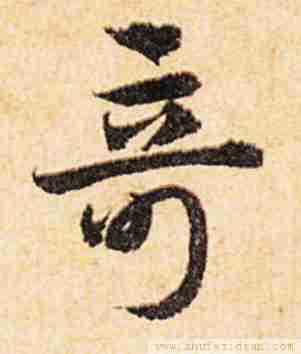 竒
www.shufazidian.com